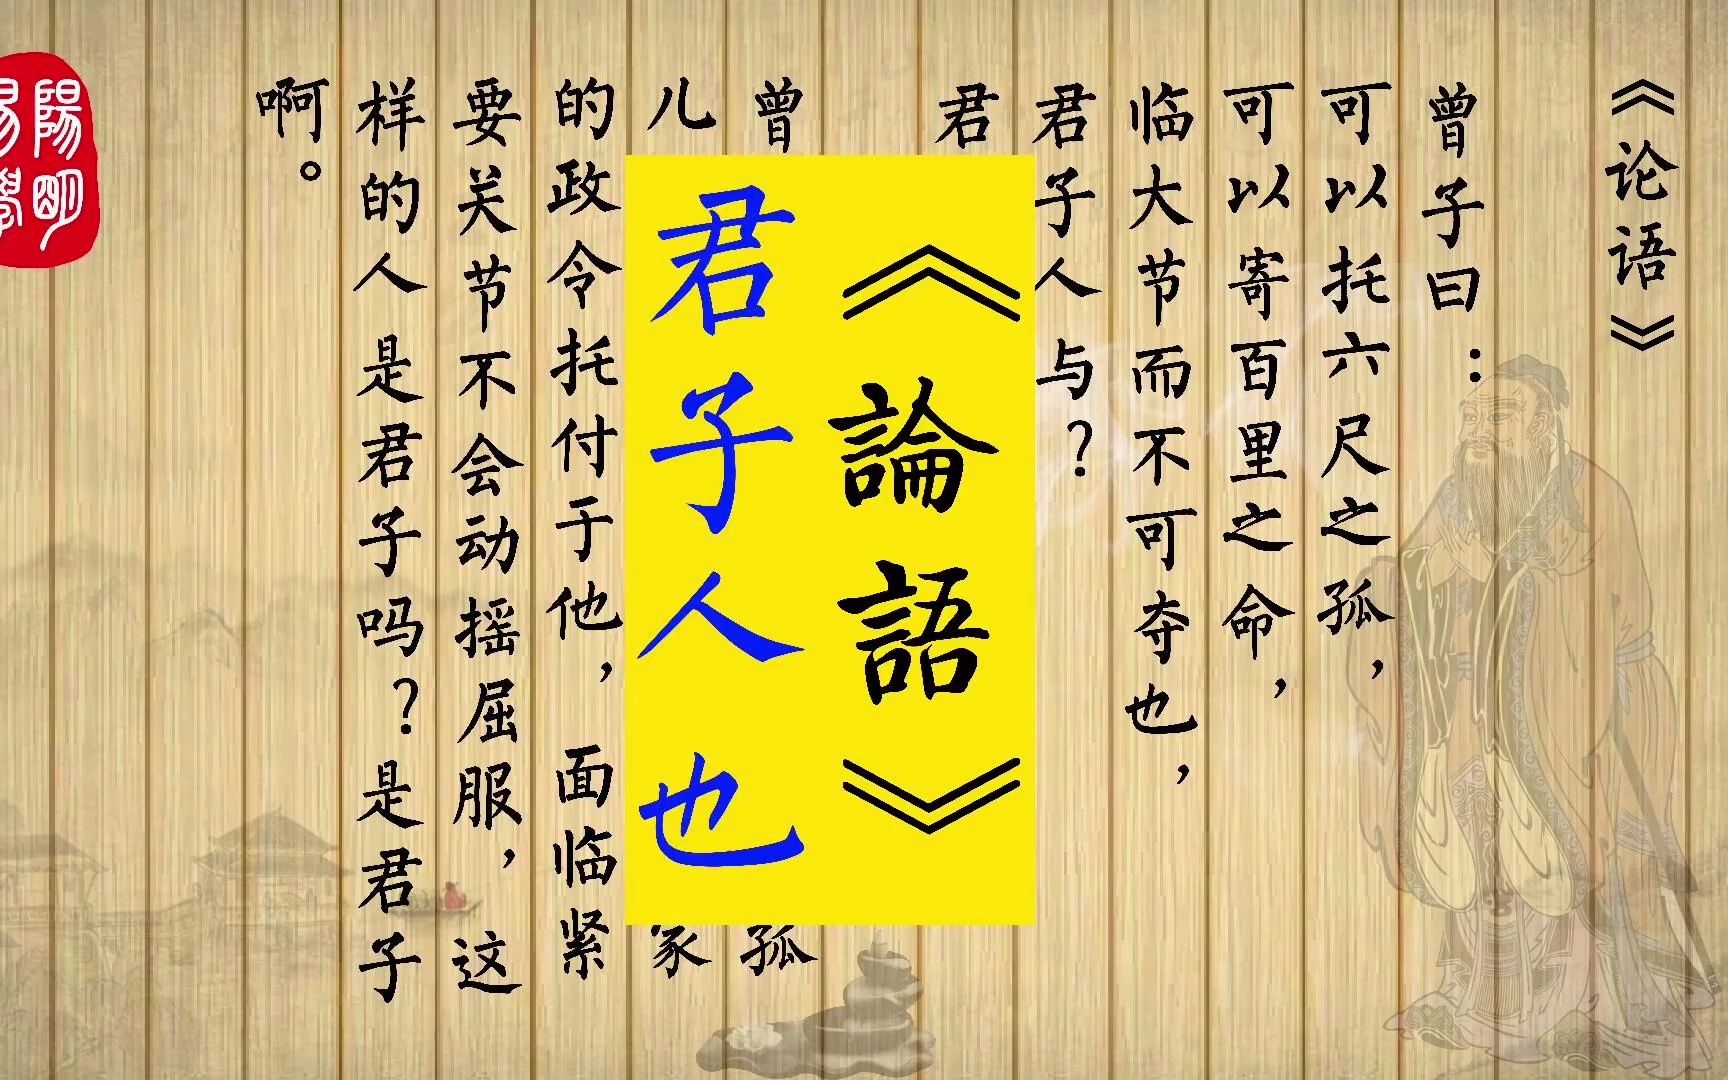 《论语》
曾子曰：
可以托六尺之孤，
可以寄百里之命，
临大节而不可夺也，
君子人与？
君
《論語》
君子人也
曾
孤
儿
家
的政令托付于他，面临紧
要关节不会动摇屈服，这
样的人是君子吗？是君子
啊。
陽明